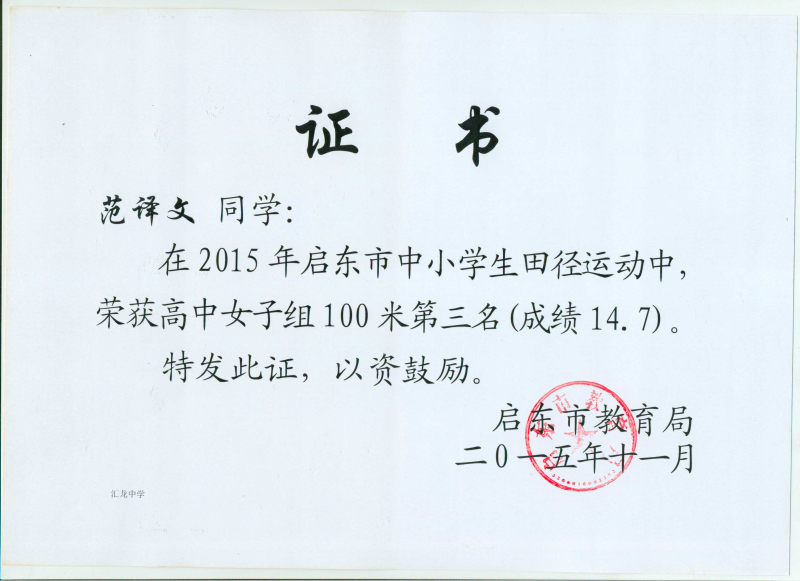 证 书
范译文 同学：
在2015年启东市中小学生田径运动中，
荣获高中女子组100米第三名(成绩14.7)。
特发此证，以资鼓励。
启东市教育局
二0一五年十一月
汇龙中学